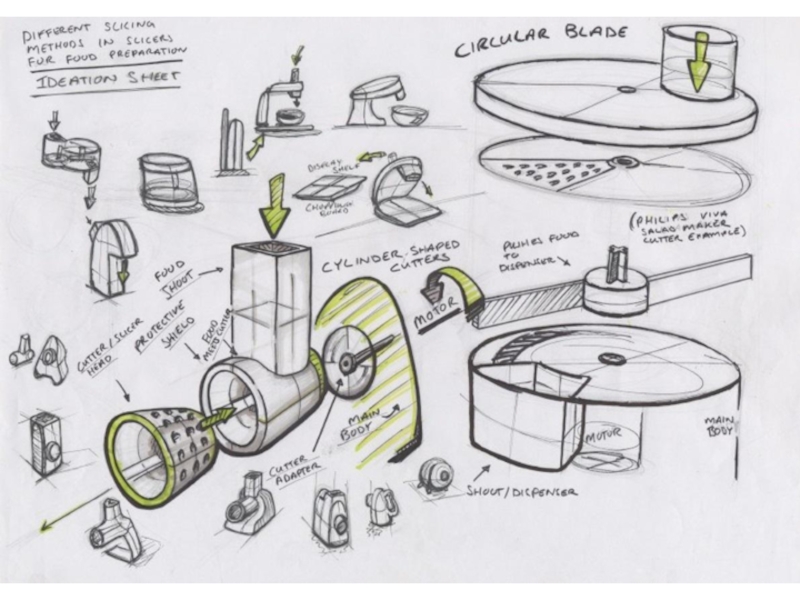 DIFFERENT SLICING
METHODS IN SLICERS
FUR FOOD PREPARATION
IDEATION SHEET
CIRCULAR BLADE
DISPLAY SHELF
CHOPPING
BOARD
(PHILIPS VIVA
SALAD MAKER
CUTTER EXAMPLE)
CYLINDER-SHAPED
CUTTERS
PUSHES FOOD
TO
DISPENSER
FOOD
SHOOT
PROTECTIVE
SHIELD
FOOD
MEETS CUTTER
MOTOR
CUTTER/SLICER
HEAD
MAIN
BODY
CUTTER
ADAPTER
MOTOR
MAIN
BODY
SHOOT/DISPENSER